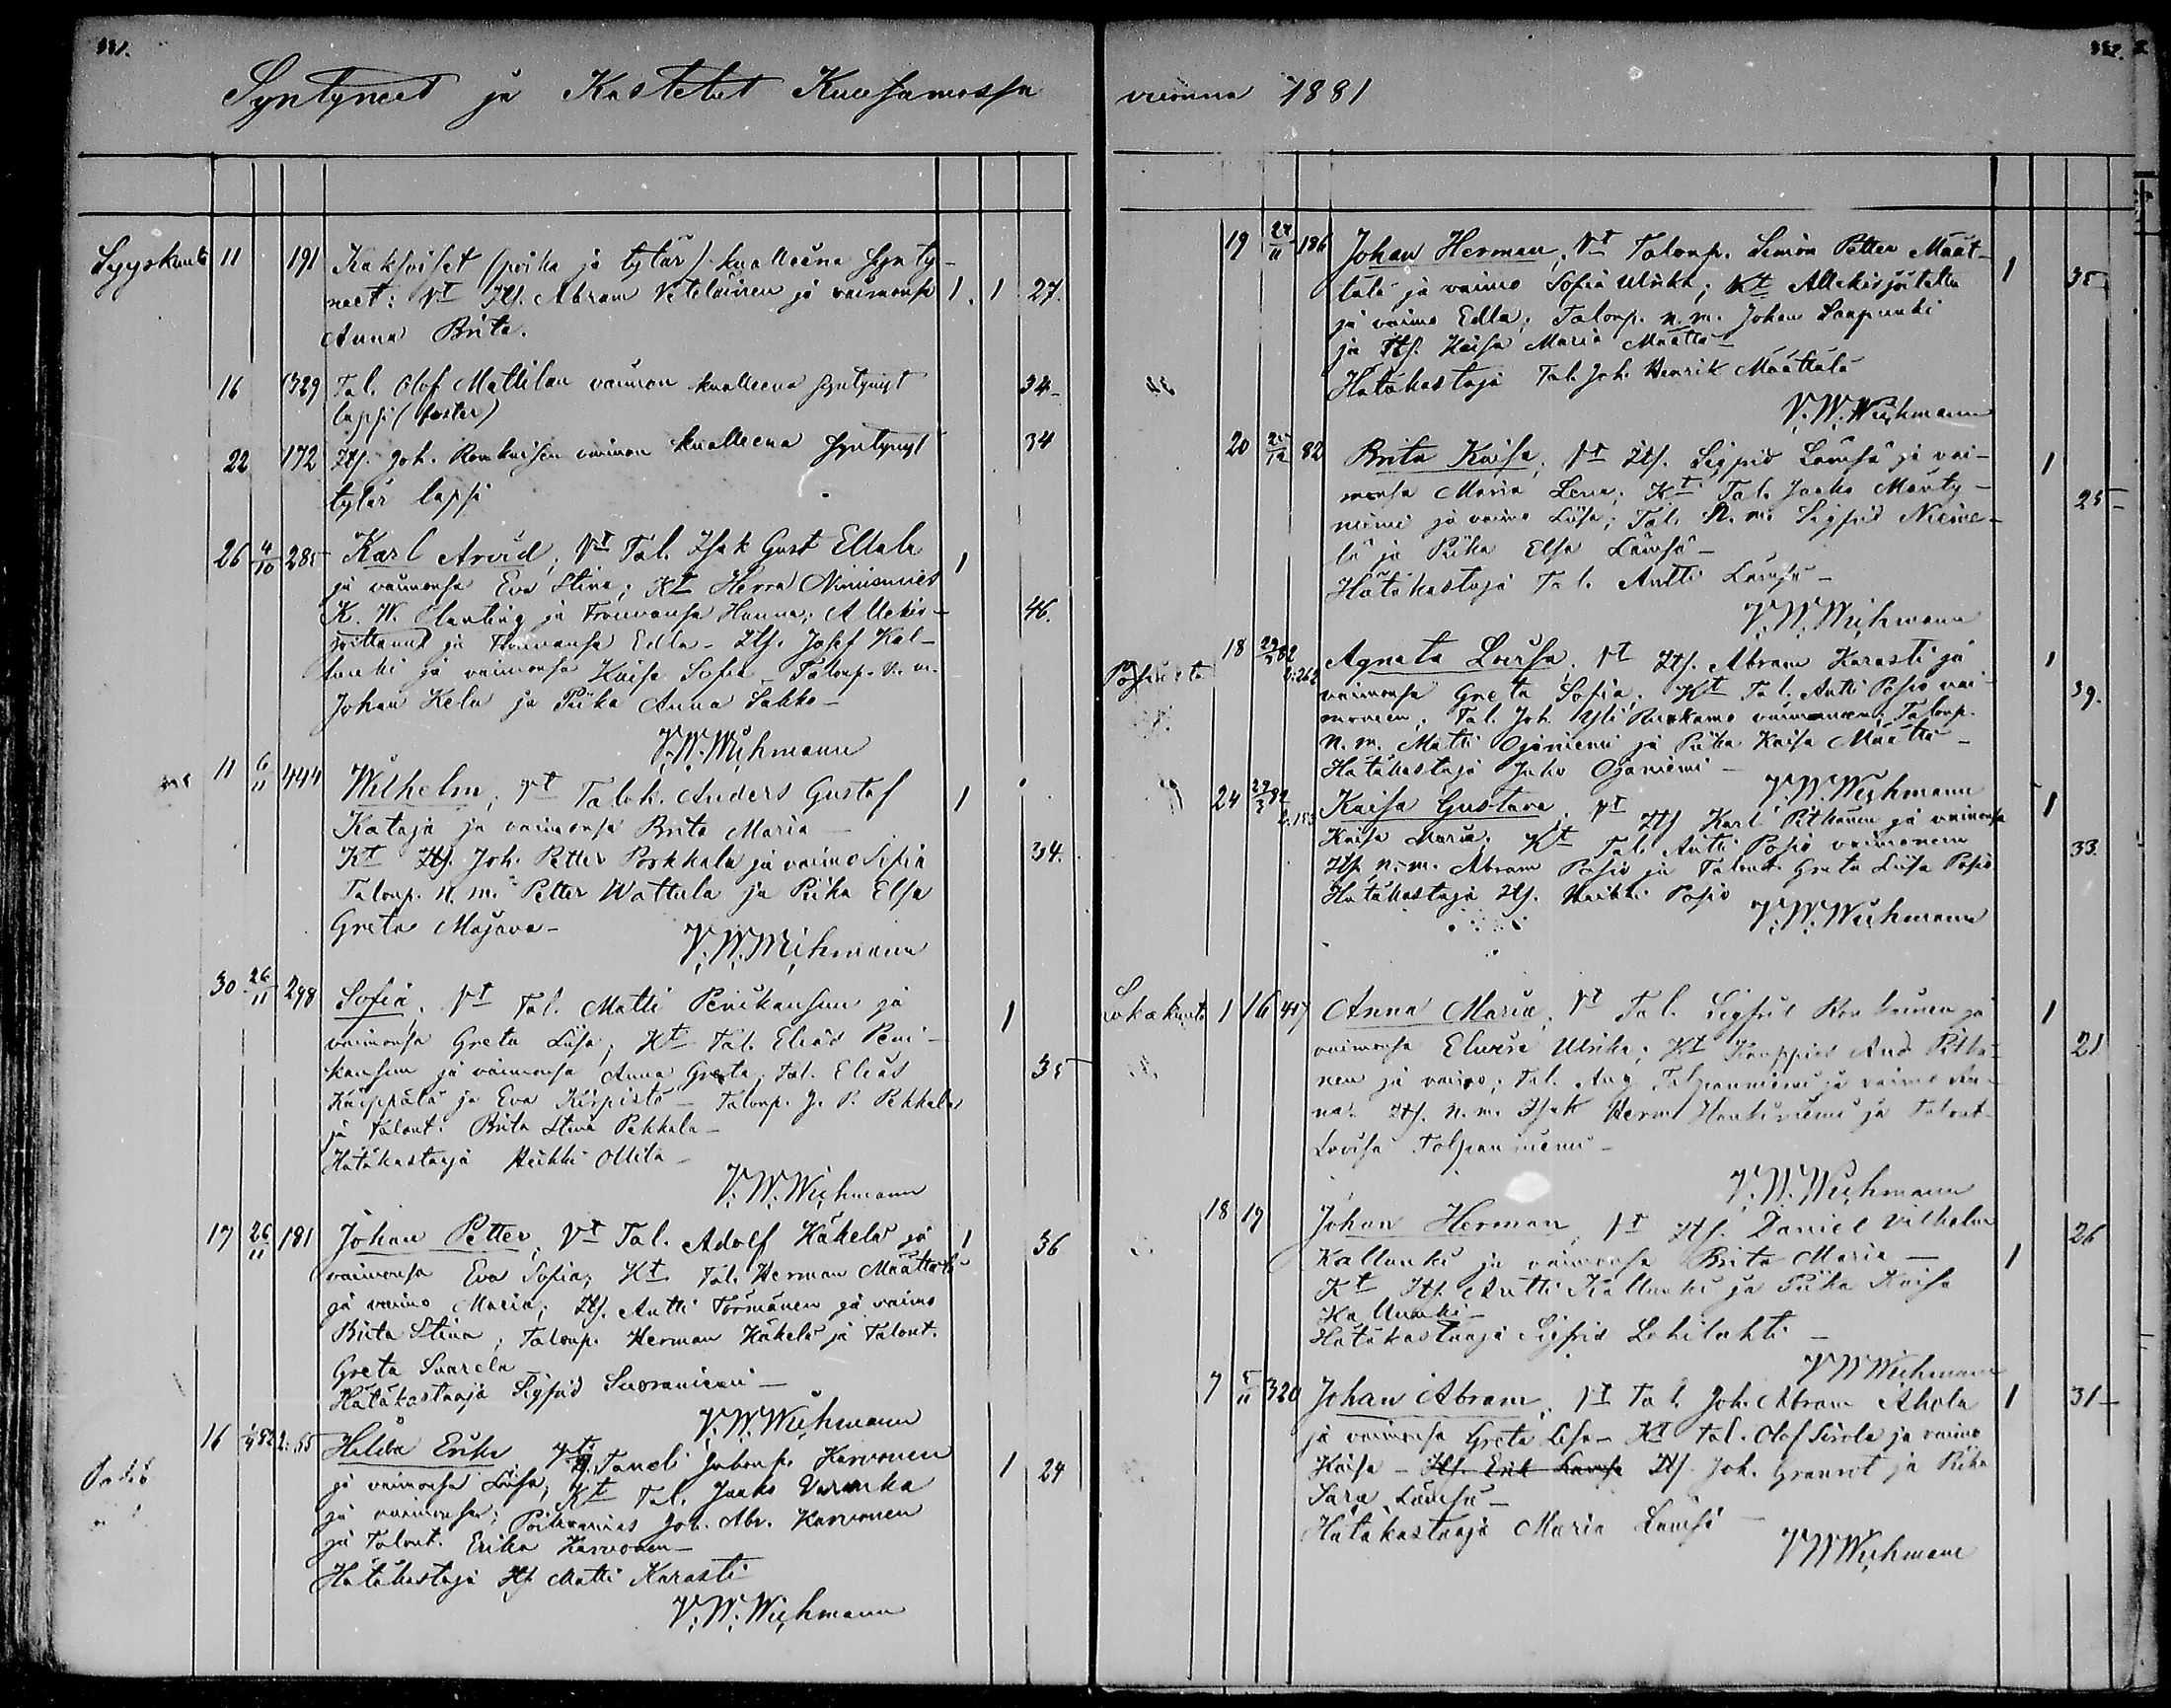 331.
Syntyneet ja Kastetut Kuusamossa
Syyskuuta 11 191 Kaksoiset (poika ja tytär) kuolleena synty-
neet: Vt Its. Abram Veteläinen ja vaimonsa 1. 1 27.
Anna Brita.
16 329 Tal. Olof Mattilan vaimon kuolleena syntynyt 34-
lapsi (foster)
22 172 Its. Joh. Ronkaisen vaimon kuolleena syntynyt 34
tytär lapsi
26 4/10 285 Karl Arvid, Vt Tal. Isak Gust Ellala 1
ja vaimonsa Eva Stina; Kt Herra Nimismies
K. W. Clanting ja Frouvansa Hanna; Allekir- 46.
joittanut ja Frouvansa Edla - Its. Josef Kal-
lunki ja vaimonsa Kaisa Sofia - Talonp. n. m.
Johan Kela ja Piika Anna Sakko -
V. W. Wichmann
11 6/11 444 Wilhelm, Vt Talok. Anders Gustaf 1
Kataja ja vaimonsa Brita Maria -
Kt Itj. Joh. Petter Porkkala ja vaimo Sofia 34.
Talonp. n. m. Petter Wattula ja Piika Elsa
Greta Majava -
V. W. Wichmann
30 26/11 298 Sofia, Vt Tal. Matti Penikansuu ja 1
vaimonsa Greta Liisa; Kt Tal. Elias Peni-
kansuu ja vaimonsa Anna Greta, Tal. Elias 35
Käppälä ja Eva Kirpistö - Talonp. J. P. Pekkala
ja Talont. Brita Stina Pekkala -
Hätäkastaja Heikki Ollila -
V. W. Wichmann
17 26/11 181 Johan Petter, Vt Tal. Adolf Käkelä ja 1 36
vaimonsa Eva Sofia; Kt Tal. Herman Määttälä
ja vaimo Maria; Itj. Antti Törmänen ja vaimo
Brita Stina; Talonp. Herman Käkelä ja Talont.
Greta Suarela
Hätäkastaja Sigfrid Suoraniemi -
V. W. Wichmann
16 82 2:55 Hilda Erika Vt Taneli Karvonen
ja vaimonsa Liisa; Kt Tal. Jaako 1 24
ja vaimonsa; Poikamies Joh. Abr. Karvonen
ja Talont. Erika Karvonen -
Hätäkastaja Itj. Matti Karasti
V. W. Wichmann
332.
vuonna 1881
19 27/11 186 Johan Herman, Vt Talonp. Simon Petter Määt-
tälä ja vaimo Sofia Ulrika; Kt Allekirjoitettu 1 35
ja vaimo Edla; Talonp. n. m. Johan Saapunki
ja Itj. Kaisa Maria Määttä -
Hätäkastaja Tal. Joh. Henrik Määttälä
V. W. Wichmann
20 82 Brita Kaisa, Vt Itj. Sigfrid Lämsä ja vai- 1
monsa Maria Lena; Kt Tal. Jaako Mänty-
niemi ja vaimo Liisa; Tal. n. m. Sigfrid Nieme- 25-
lä ja Piika Elsa Lämsä -
Hätäkastaja Tal. Antti Lämsä -
V. W. Wichmann
18 82 2:262 Agneta Lovisa, Vt Itj. Abram Karasti ja 1
vaimonsa Greta Sofia; Kt Tal. Antti Posio vai- 39.
moneen; Tal. Joh. Yli Ruokamo vaimoneen; Talonp.
n. m. Matti Ojaniemi ja Piika Kaisa Määttä -
Hätäkastaja Juho Ojaniemi -
V. W. Wichmann
24 82 2:153 Kaisa Gustava, Vt Itj. Karl Pitkänen ja vaimonsa 1
Kaisa Maria; Kt Tal. Antti Posio vaimoneen
Itj. n. m. Abram Posio ja Talont. Greta Liisa Posio 33.
Hätäkastaja Itj. Heikki Posio
V. W. Wichmann
Lokakuuta 1 16 457 Anna Maria, Vt Tal. Sigfrid Ronkainen ja 1
vaimonsa Elviira Ulrika; Kt Kauppias And. Pitkä- 21
nen ja vaimo; Tal. Aug Tolpanniemi ja vaimo An-
na. Itj. n. m. Isak Herm Hankiniemi ja Talont.
Lovisa Tolpanniemi -
V. W. Wichmann
18 19 Johan Herman, Vt Itj. Daniel Vilhelm 26
Kallunki ja vaimonsa Brita Maria - 1
Kt Itj. Antti Kallunki ja Piika Kaisa
Kallunki -
Hätäkastaja Sigfrid Lohilahti -
V W Wichmann
7 5/11 320 Johan Abram, Vt Tal. Joh. Abram Ahola 1 31-
ja vaimonsa Greta Lisa - Kt Tal. Olof Sirola ja vaimo
Kaisa - Itj. Erik Lämsä Itj. Joh. Granrot ja Piika
Sara Lämsä -
Hätäkastaja Maria Lämsä -
V W Wichmann